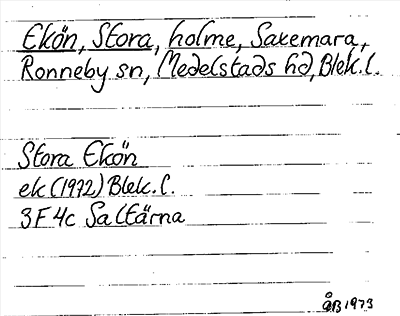 Ekön, Stora, holme, Saxemara,
Ronneby sn, Medelstads hd, Blek. l.
Stora Ekön
ek (1972) Blek. l.
3F 4c Saltärna
ÅB 1973